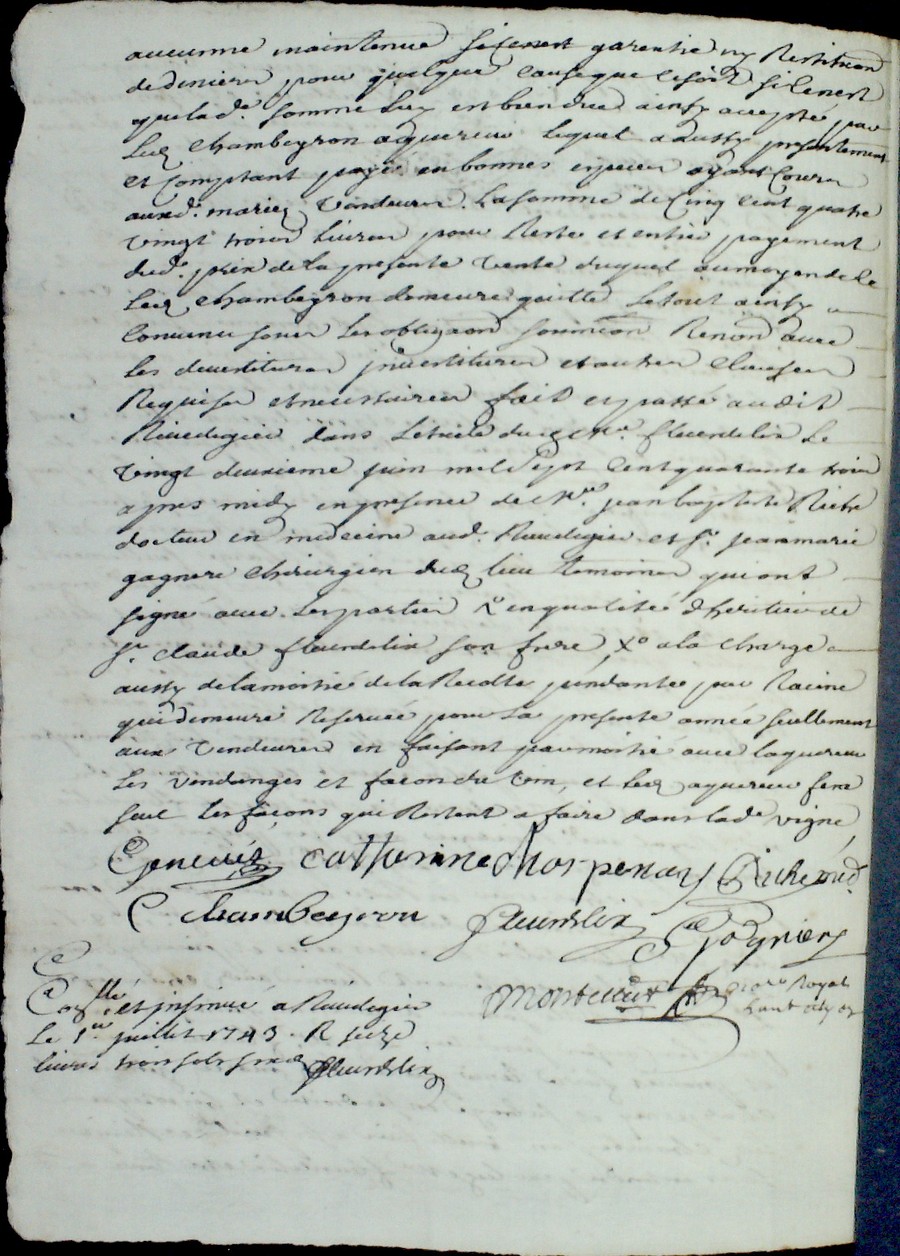 aucunne maintenue si cenest garentie ny Restitution
de deniers pour quelque cause que ce soit si cenest
que lad.e somme luy est bien due ainsy accepté par
led chambeyron acquereur lequel a aussy presentement
et comptant payé en bonnes especes ayant Cours
auxd. mariez vendeurs. La somme de Cinq Cent quatre
vingt trois Livres pour Reste et entier payement
dud. prix de la presente vente duquel aumoyen de ce
Led chambeyron demeure quitte Le tout ainsy
Convenu sous Les obligaons Renon avec
Les devestitures investitures et autres Clauses
Requises et necessaires fait et passé audit
Rivedegier dans L'etude dud Me. fleurdelix Le
vingt deuxieme juin mil Sept Cent quarante trois
apres midy en presence de Me. jean baptiste Riche
docteur en medecine aud. Rivedegier et Sr. jean marie
gagniere chirurgien dud lieu temoins qui ont
signé avec Les parties X en qualité d'heritier de
Sr. claude fleurdelix son frere Xo a la charge
aussy de la moitié de la Recolte pendante par Racine
qui demeure Reservée pour La presente année seullement
aux Vendeurs en faisant par moitié avec lacquereur
Les vendanges et façon du vin, et led acquereur fera
seul les façons qui Restent a faire dans lad.e vigne
catherine Chospenas Riche med.
Chambeyron fleurdelix Gagniere
Montellier Royal
Conllé et insinué a Rivedegier
Le 1er juillet 1743. R seize
livres trois sols fleurdelix